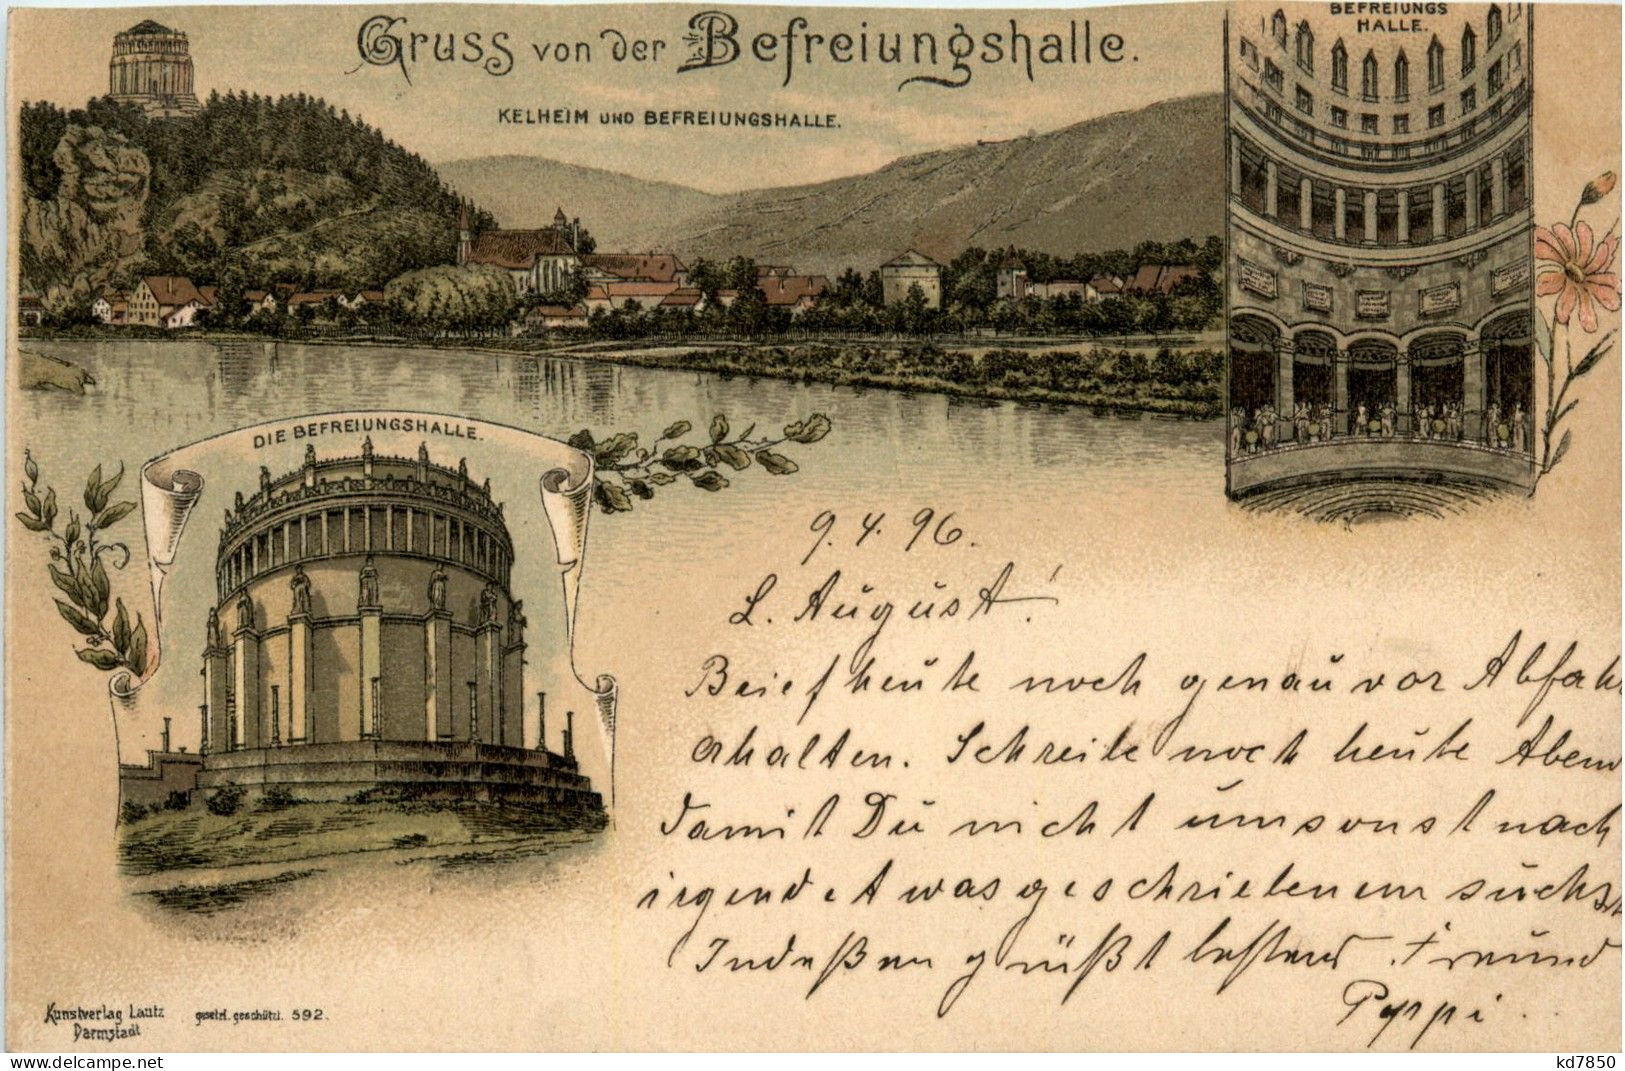 Gruss von der Befreiungshalle.
KELHEIM UND BEFREIUNGSHALLE.
BEFREIUNGS
HALLE.
DIE BEFREIUNGSHALLE.
9. 4. 96.
L. August!
Brief heute noch genau vor Abfah
erhalten. Schreibe noch heute Aben
damit Du nicht umsonst nach
irgend etwas geschriebenem suchst
Indeßen grüßt bestens Freund
Peppi.
Kunstverlag Lautz
Darmstadt
gesetzl. geschützt. 592.
kd7850